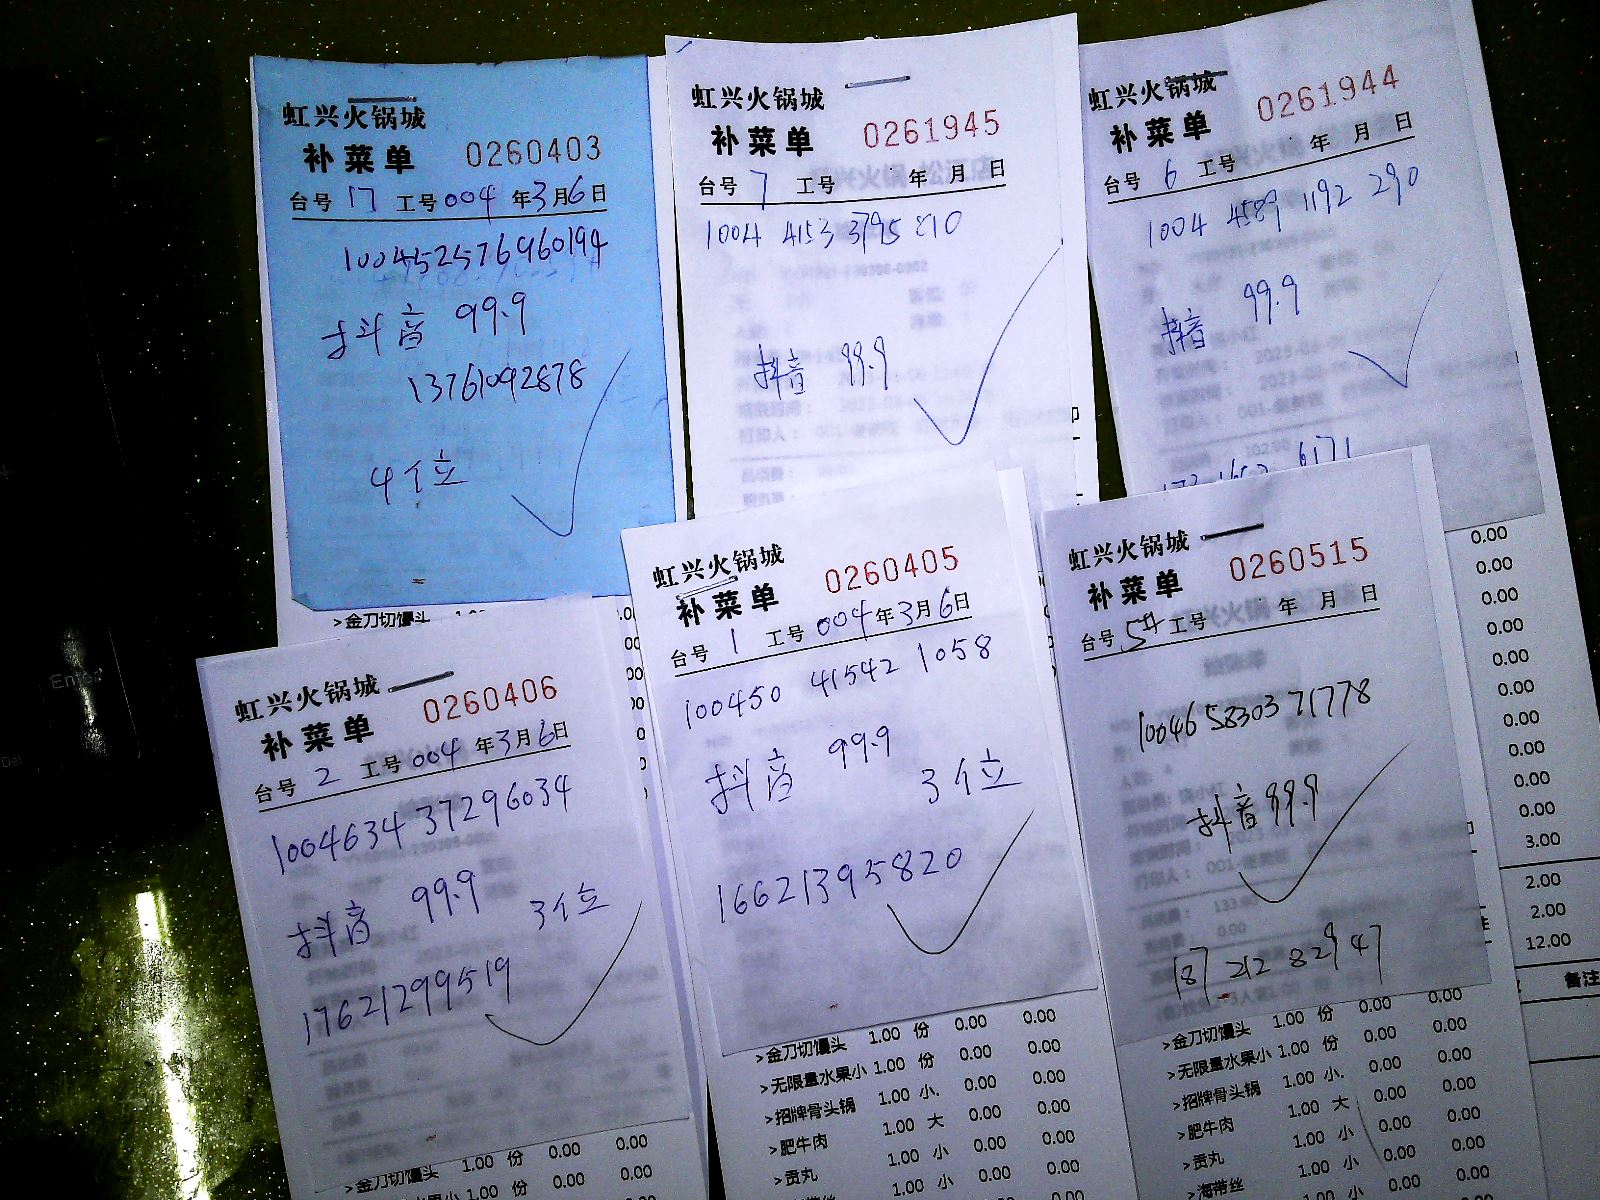 虹兴火锅城
补菜单 0260403
台号 17 工号 004 年3月6日
100452576960194
抖音 99.9
13761092878
4个位
>金刀切馒头
虹兴火锅城
补菜单 0261945
台号 7 工号 年 月 日
1004 4153 3795 810
抖音 99.9
虹兴火锅城
补菜单 0261944
台号 6 工号 年 月 日
1004 4589 1192 290
抖音 99.9
6171
0.00
0.00
0.00
0.00
0.00
0.00
0.00
0.00
0.00
0.00
3.00
2.00
2.00
12.00
备注
虹兴火锅城
补菜单 0260406
台号 2 工号 004 年3月6日
1004634 37296034
抖音 99.9 3个位
17621299519
>金刀切馒头 1.00 份 0.00 0.00
1.00 份 0.00 0.00
虹兴火锅城
补菜单 0260405
台号 1 工号 004 年3月6日
100450 41542 1058
抖音 99.9 3个位
16621395820
>金刀切馒头 1.00 份 0.00 0.00
>无限量水果小 1.00 份 0.00 0.00
>招牌骨头锅 1.00 小. 0.00 0.00
>肥牛肉 1.00 大 0.00 0.00
>贡丸 1.00 小 0.00 0.00
1.00 小 0.00 0.00
虹兴火锅城
补菜单 0260515
台号 工号 年 月 日
10046 58303 71778
抖音 99.9
187 212 82947
>金刀切馒头 1.00 份 0.00 0.00
>无限量水果小 1.00 份 0.00 0.00
>招牌骨头锅 1.00 小. 0.00 0.00
>肥牛肉 1.00 大 0.00 0.00
>贡丸 1.00 小 0.00 0.00
>海带丝 1.00 小 0.00 0.00